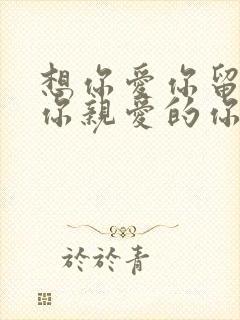 想你愛你留
你親愛的你
於於青